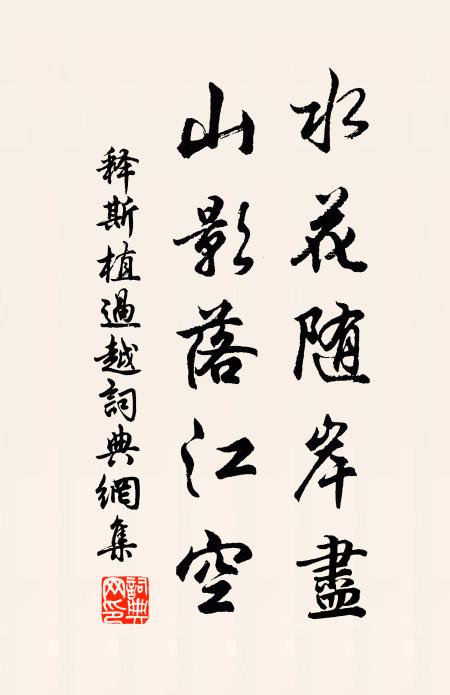 水花随岸盡
山影落江空
释斯植過越詞典網集
詞典网印